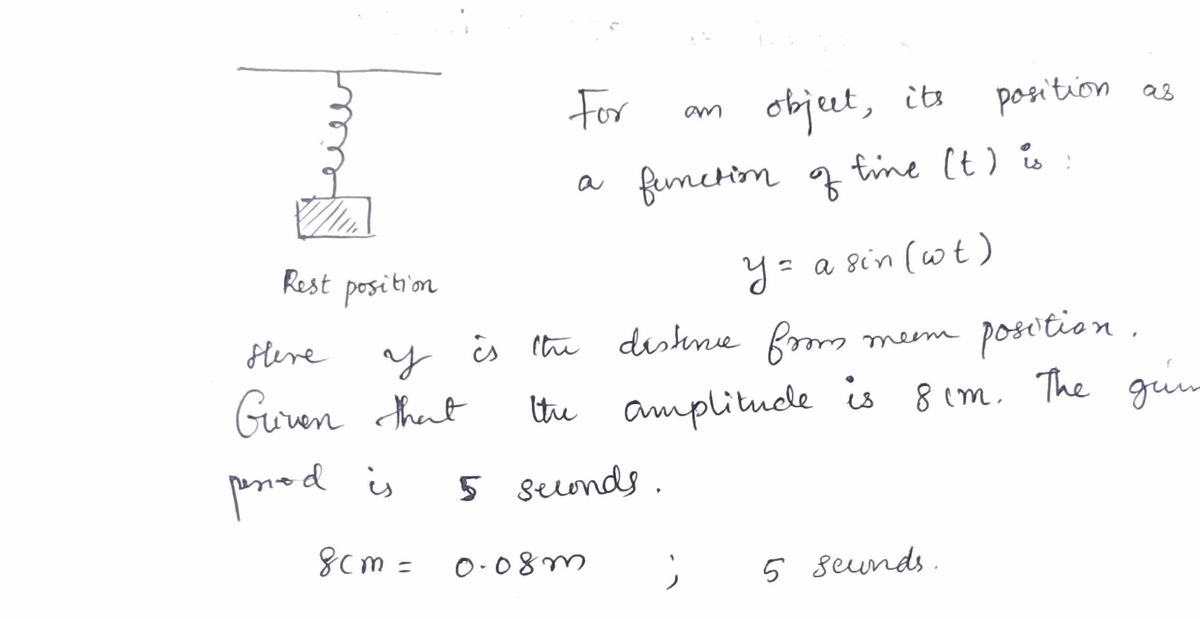 For an object, its position as
a function of time (t) is :
y = a sin(ωt)
Rest position
Here y is the distance from mean position.
Given that the amplitude is 8 cm. The
period is 5 seconds.
8cm = 0.08m ; 5 seconds.